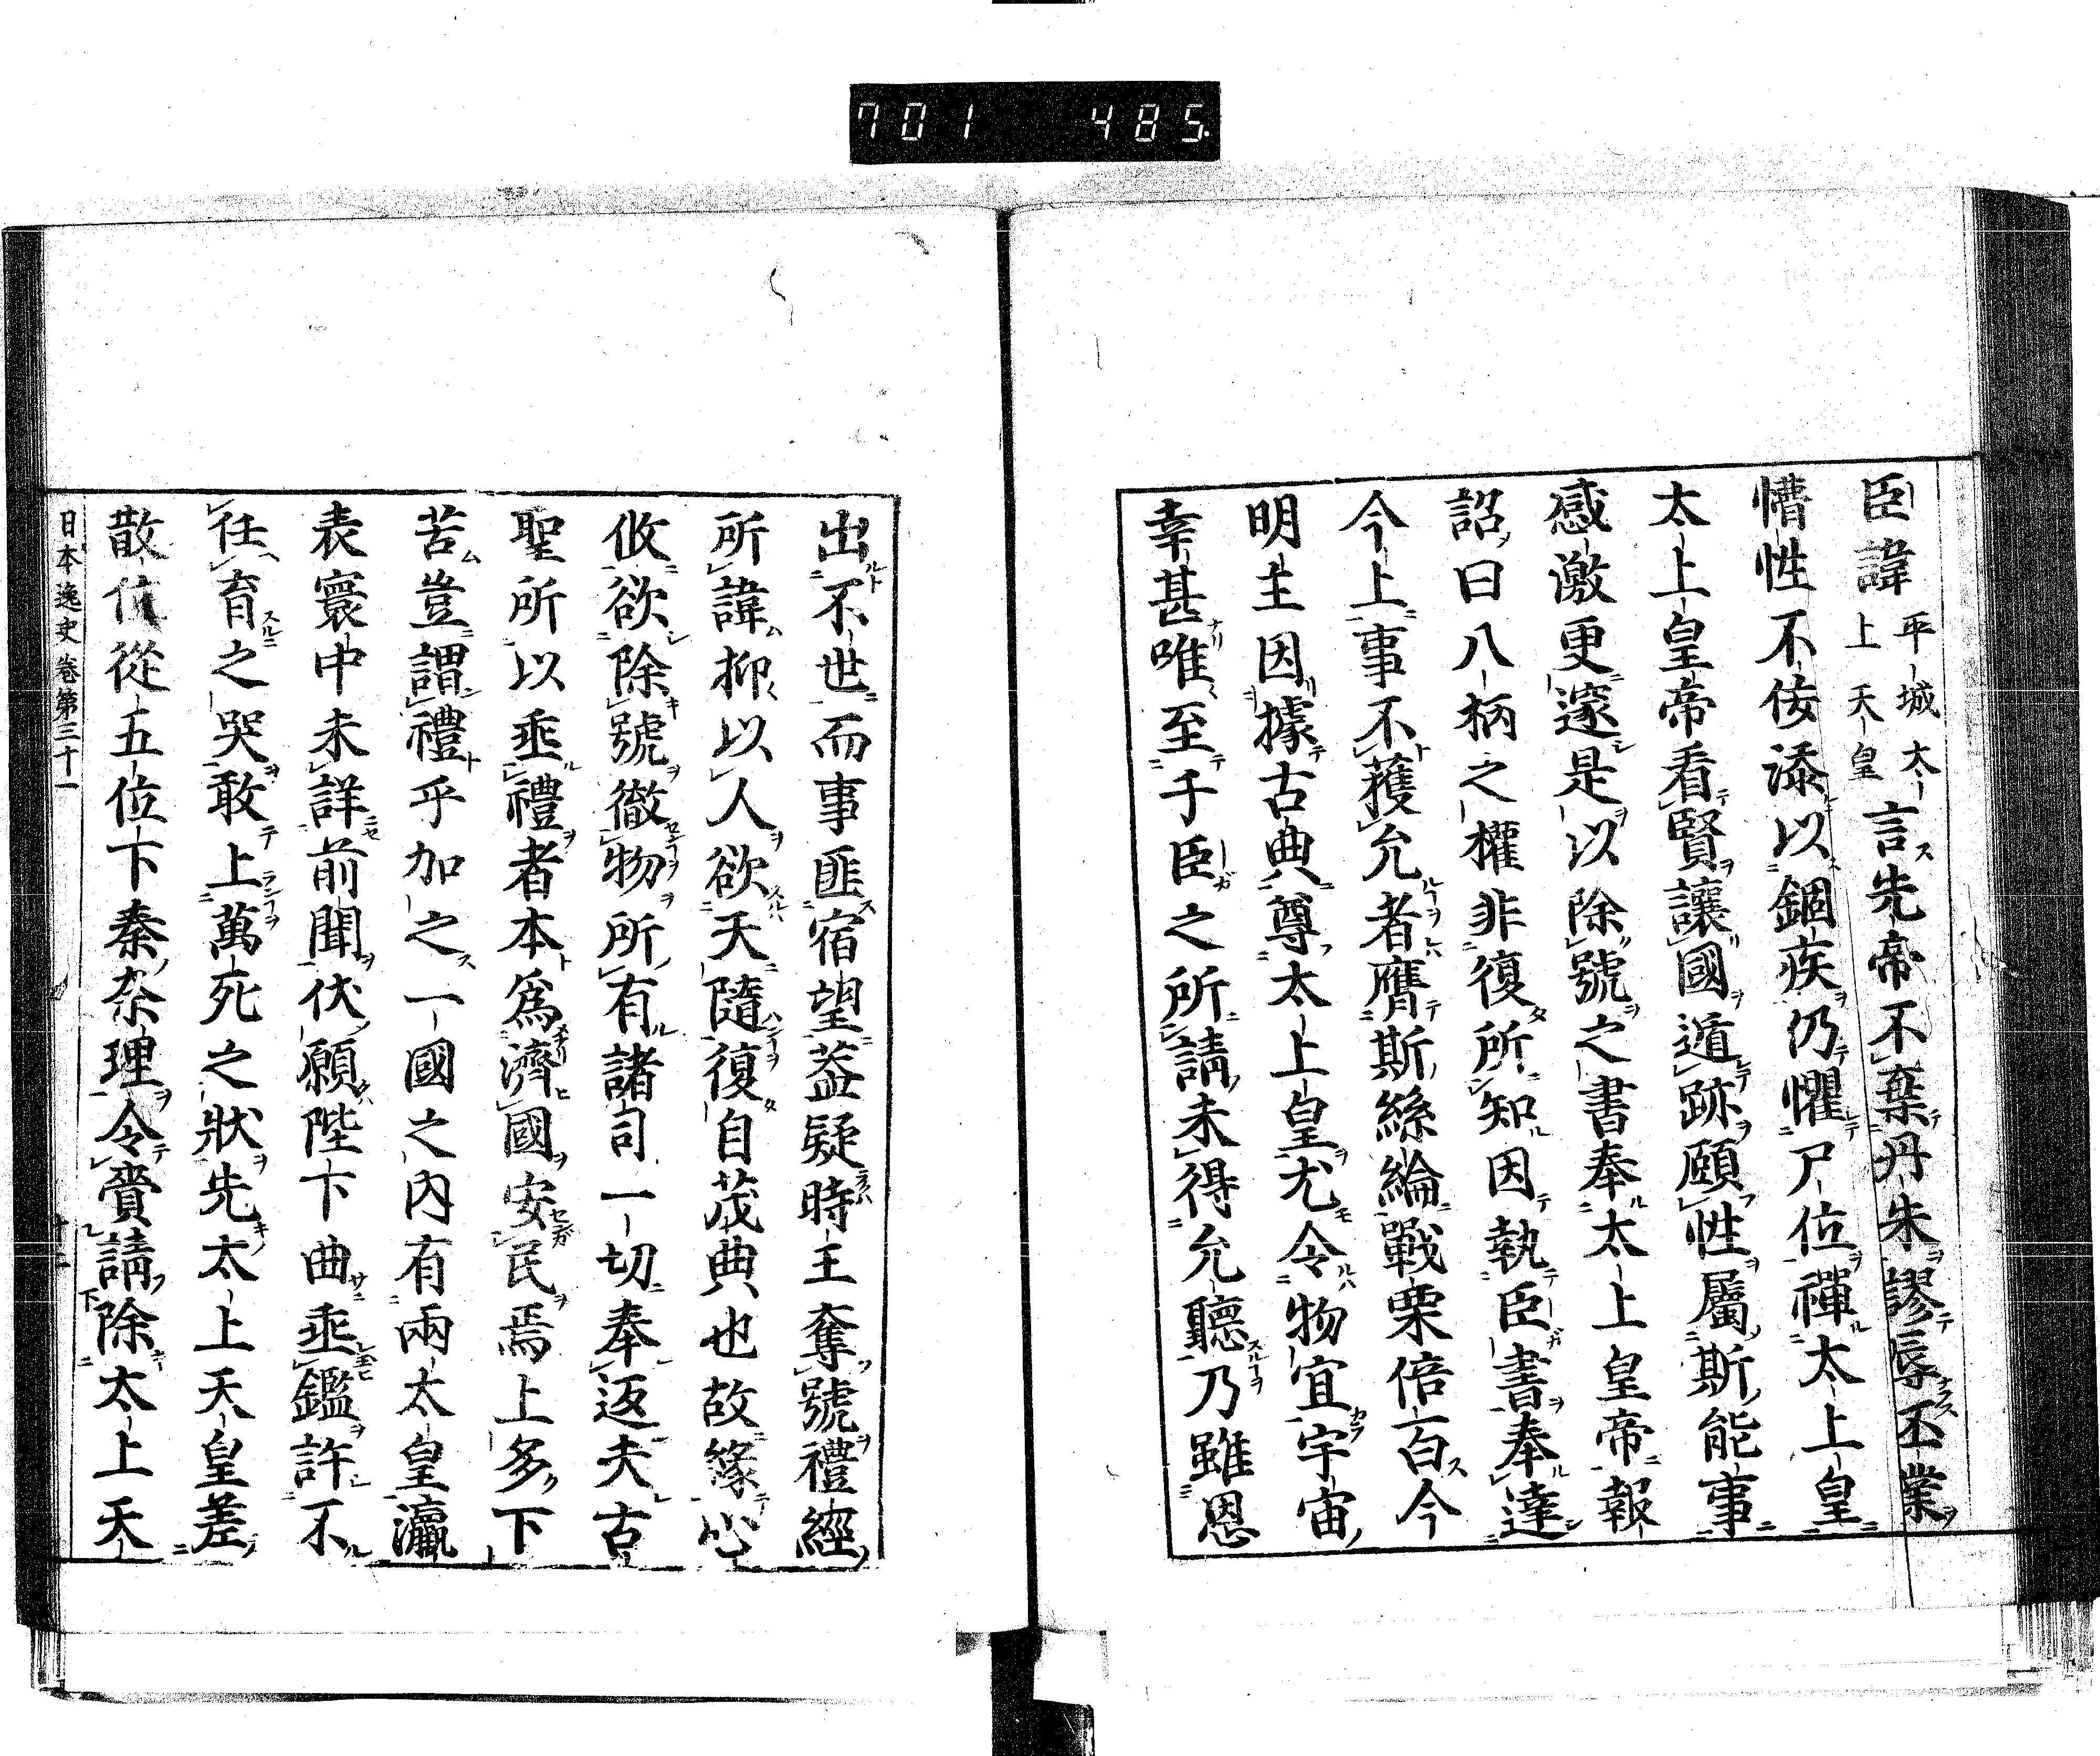 701 485
臣諱平城太上天皇言先帝不棄丹朱謬辱丕業
慒性不佞添以錮疾仍懼尸位禪太上皇
太上皇帝看賢讓國遁跡頤性屬斯能事
感激更邃是以除號之書奉太上皇帝報
詔曰八柄之權非復所知因執臣書奉達
今上事不獲允者膺斯絲綸戰栗倍百今
明主因據古典尊太上皇尤令物宜宇宙
幸甚唯至于臣之所請未得允聽乃雖恩
出不世而事匪宿望葢疑時王奪號禮經
所諱抑以人欲天隨復自茂典也故緣心
攸欲除號徹物所有諸司一切奉返夫古
聖所以垂禮者本爲濟國安民焉上多下
苦豈謂禮乎加之一國之內有兩太皇瀛
表寰中未詳前聞伏願陛下曲垂鑑許不
任育之哭敢上萬死之狀先太上天皇差
散位從五位下秦奈理令齎請除太上天
日本逸史卷第三十一 十二